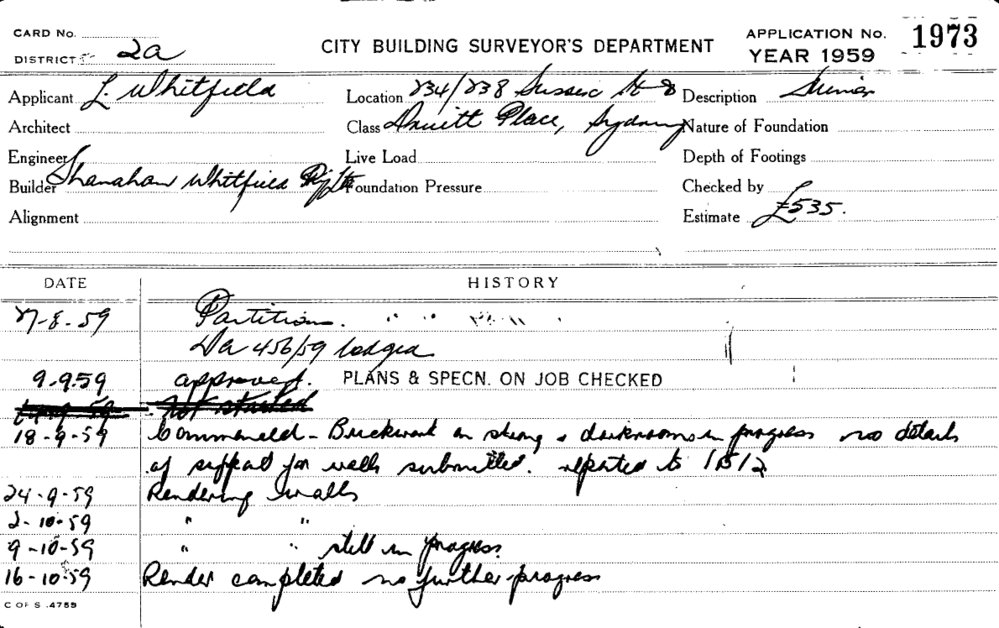 CARD No.
DISTRICT 2a
CITY BUILDING SURVEYOR'S DEPARTMENT
APPLICATION No. 1973
YEAR 1959
Applicant L. Whitfield
Location 234/238 Sussex St &
Description
Architect
Class Druitt Place, Sydney
Nature of Foundation
Engineer
Live Load
Depth of Footings
Builder Shanahan Whitfield P/L
Foundation Pressure
Checked by
Alignment
Estimate £535.
DATE HISTORY
27-8-59 Partitions.
Da 456/59 lodged
9.9.59 approved. PLANS & SPECN. ON JOB CHECKED
59 not started
18-9-59 Commenced - Brickwork on strong & darkrooms in progress no details
of support for walls submitted. reported to
24-9-59 Rendering walls
2-10-59 " "
9-10-59 " " still in progress.
16-10-59 Render completed no further progress
C OF S .4759